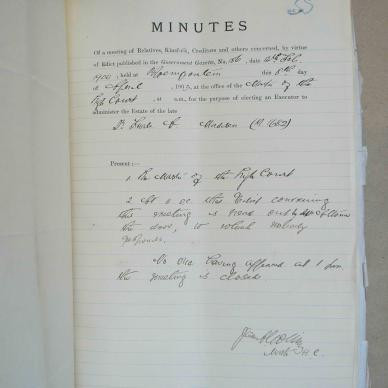 MINUTES
Of a meeting of Relatives, Kinsfolk, Creditors and others concerned, by virtue
of Edict published in the Government Gazette, No. 156, date Feb.
190 , held at Bloemfontein this 8th day
of April , 1905, at the office of the Master of the
High Court , at a.m., for the purpose of electing an Executor to
administer the Estate of the late
Present :—
1. The Master of the High Court
2. At a.c. this Edict convening
this meeting is read out by
the door, to which nobody
responds.
No one having appeared at 1 pm
the meeting is closed